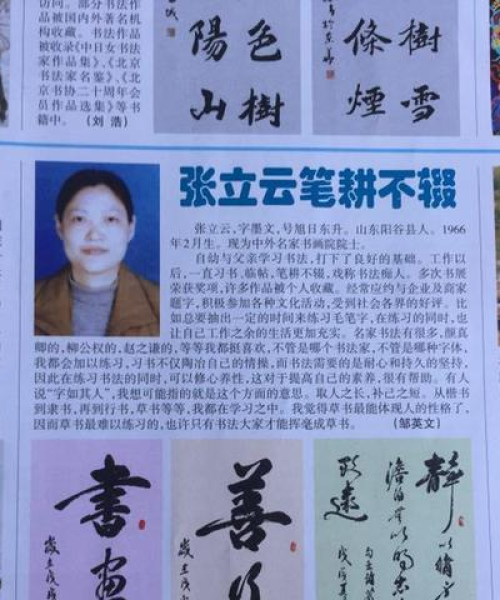 访问。部分书法作
品被国内外著名机
构收藏。书法作品
被收录《中日女书法
家作品集》、《北京
书法家名鉴》、《北
京书协二十周年会
员作品选集》等书
籍中。 (刘 浩)
陽 色
山 樹
條 樹
煙 雪
张立云笔耕不辍
张立云,字墨文,号旭日东升。山东阳谷县人。1966
年2月生。现为中外名家书画院院士。
自幼与父亲学习书法,打下了良好的基础。工作以
后,一直习书、临帖,笔耕不辍,戏称书法痴人。多次书展
荣获奖项,许多作品被个人收藏。经常应约与企业及商家
题字,积极参加各种文化活动,受到社会各界的好评。比
如总要抽出一定的时间来练习毛笔字,在练习的同时,也
让自己工作之余的生活更加充实。名家书法有很多,颜真
卿的,柳公权的,赵之谦的,等等我都挺喜欢,不管是哪个书法家,不管是哪种字体,
我都会加以练习,习书不仅陶冶自己的情操,而书法需要的是耐心和持久的坚持,
因此在练习书法的同时,可以修心养性,这对于提高自己的素养,很有帮助。有人
说“字如其人”,我想可能指的就是这个方面的意思。取人之长,补己之短。从楷书
到隶书,再到行书,草书等等,我都在学习之中。我觉得草书最能体现人的性格了,
因而草书最难以练习的,也许只有书法大家才能挥毫成草书。 (邹英文)
書画
善行
静以修
澹泊以明志
致遠